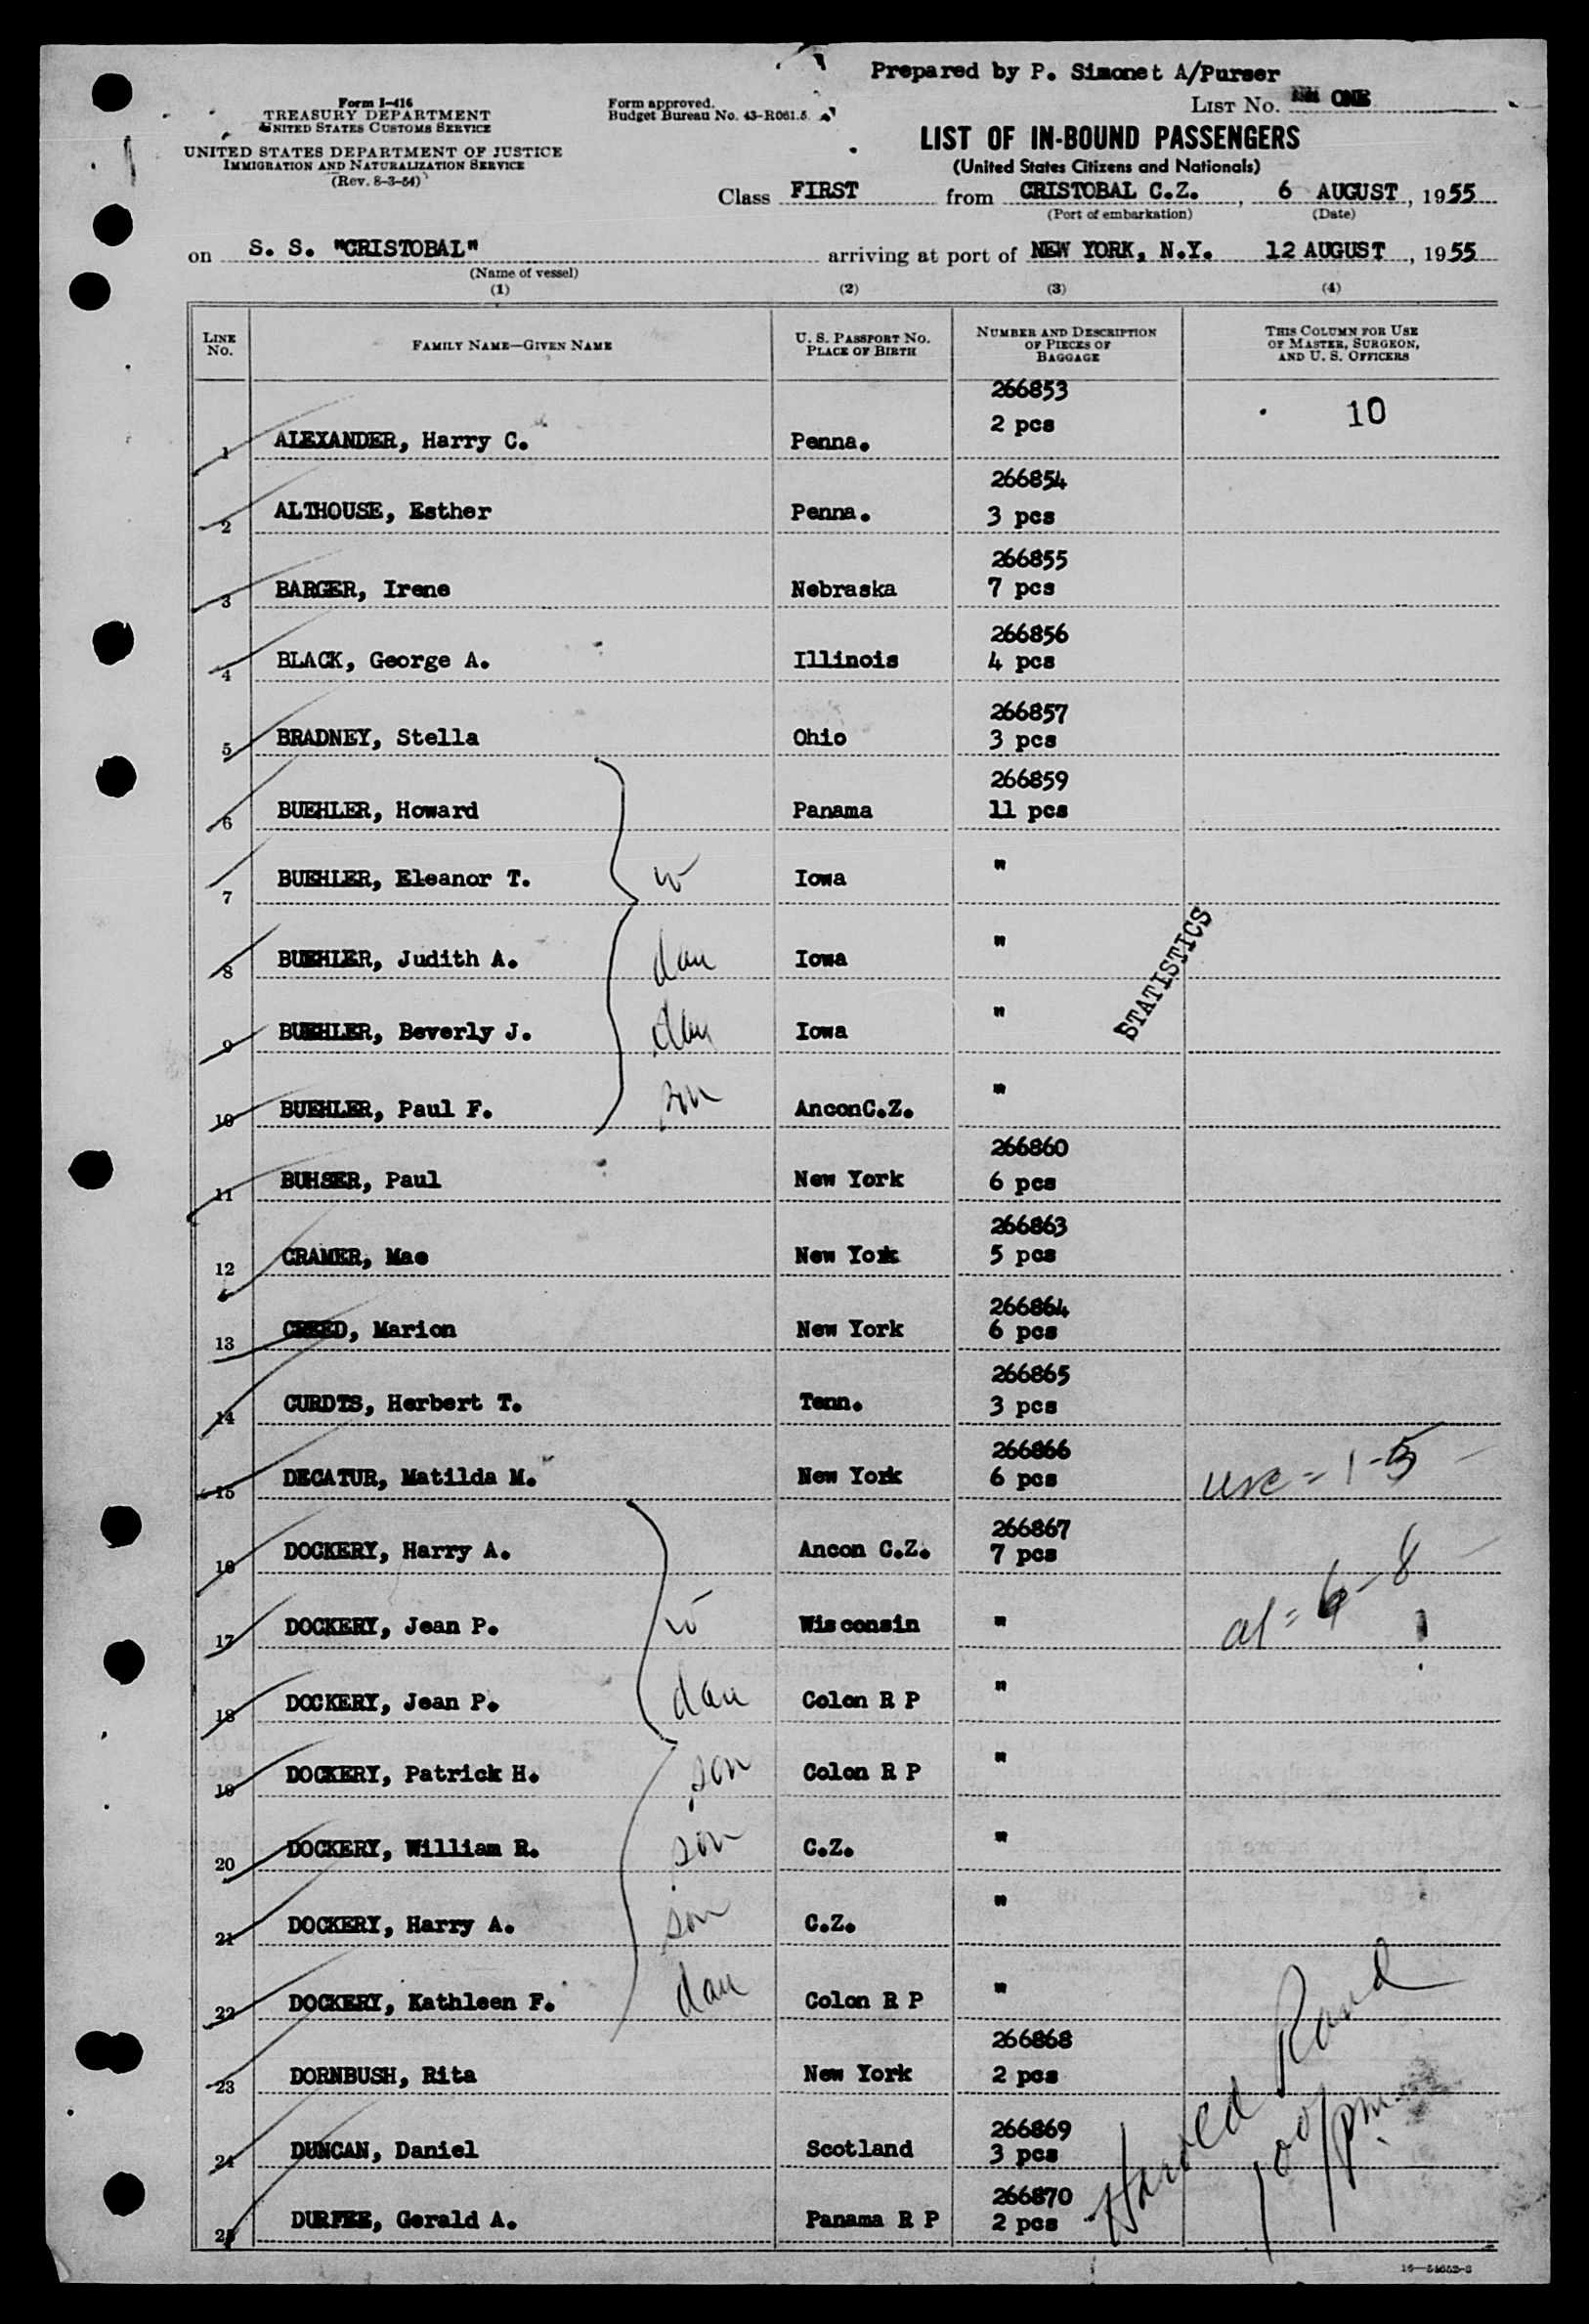 Prepared by P. Simonet A/Purser
Form I-416
TREASURY DEPARTMENT
UNITED STATES CUSTOMS SERVICE
UNITED STATES DEPARTMENT OF JUSTICE
IMMIGRATION AND NATURALIZATION SERVICE
(Rev. 8-3-54)
Form approved.
Budget Bureau No. 43-R061.5.
LIST No. ONE
LIST OF IN-BOUND PASSENGERS
(United States Citizens and Nationals)
Class FIRST from CRISTOBAL C.Z., 6 AUGUST, 1955
(Port of embarkation) (Date)
on S. S. "CRISTOBAL" arriving at port of NEW YORK, N.Y. 12 AUGUST, 1955
(Name of vessel)
(1) (2) (3) (4)
LINE No. FAMILY NAME—GIVEN NAME U. S. PASSPORT No. PLACE OF BIRTH NUMBER AND DESCRIPTION OF PIECES OF BAGGAGE THIS COLUMN FOR USE OF MASTER, SURGEON, AND U. S. OFFICERS
266853
1 ALEXANDER, Harry C. Penna. 2 pcs 10
266854
2 ALTHOUSE, Esther Penna. 3 pcs
266855
3 BARGER, Irene Nebraska 7 pcs
266856
4 BLACK, George A. Illinois 4 pcs
266857
5 BRADNEY, Stella Ohio 3 pcs
266859
6 BUEHLER, Howard Panama 11 pcs
7 BUEHLER, Eleanor T. w Iowa "
8 BUEHLER, Judith A. dau Iowa "
9 BUEHLER, Beverly J. dau Iowa "
STATISTICS
10 BUEHLER, Paul F. son AnconC.Z. "
266860
11 BUHSER, Paul New York 6 pcs
266863
12 CRAMER, Mae New York 5 pcs
266864
13 CREED, Marion New York 6 pcs
266865
14 CURDTS, Herbert T. Tenn. 3 pcs
266866
15 DECATUR, Matilda M. New York 6 pcs usc = 1-5
266867
16 DOCKERY, Harry A. Ancon C.Z. 7 pcs
17 DOCKERY, Jean P. w Wisconsin " al = 6-8
18 DOCKERY, Jean P. dau Colon R P "
19 DOCKERY, Patrick H. son Colon R P "
20 DOCKERY, William R. son C.Z. "
21 DOCKERY, Harry A. son C.Z. "
22 DOCKERY, Kathleen F. dau Colon R P "
266868
23 DORNBUSH, Rita New York 2 pcs
266869
24 DUNCAN, Daniel Scotland 3 pcs
266870
25 DURFEE, Gerald A. Panama R P 2 pcs
Harold Rand
100/pm